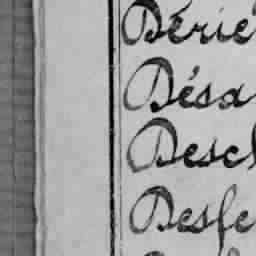 Dérié
Désa
Descl
Desfe